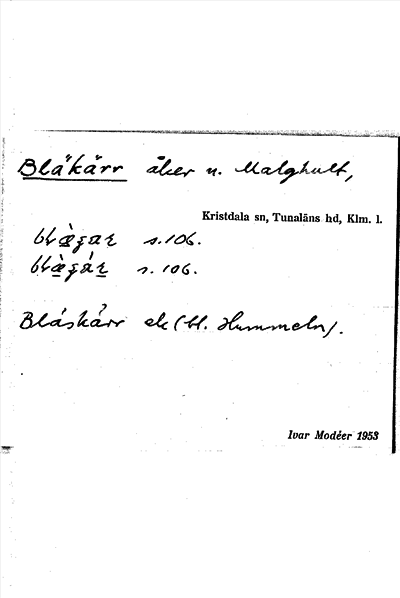 Blåkärr åker n. Malghult,
Kristdala sn, Tunaläns hd, Klm. l.
s. 106.
s. 106.
Blåskärr ek (bl. Hummeln).
Ivar Modéer 1953